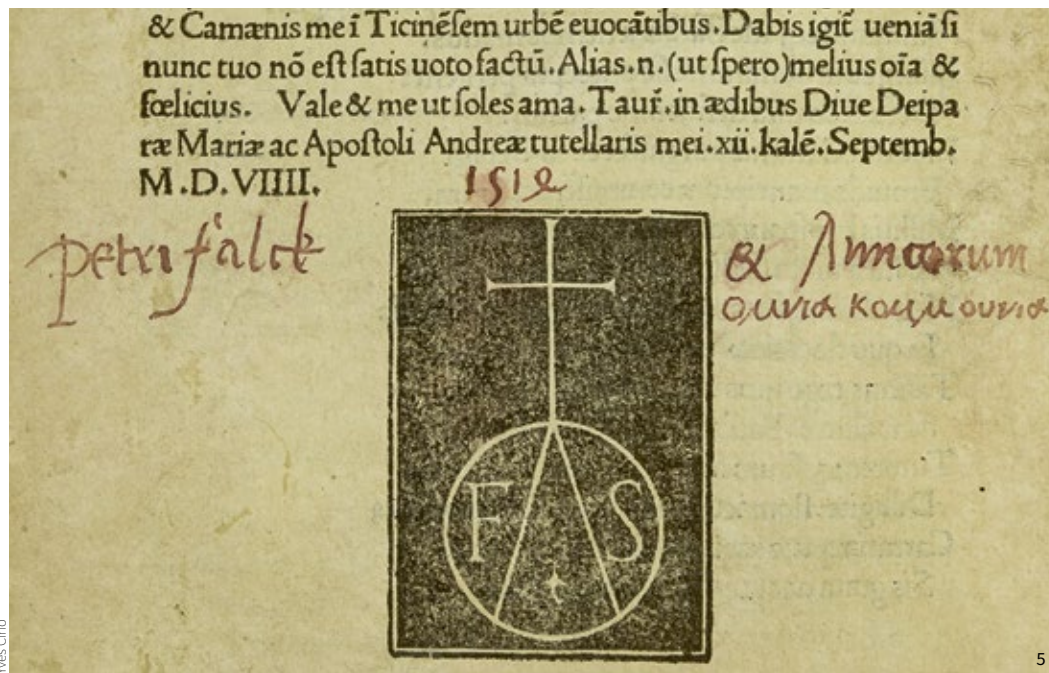 & Camænis me ī Ticinēsem urbē euocātibus. Dabis igit̄ ueniā si
nunc tuo nō est satis uoto factū. Alias. n. (ut spero) melius oīa &
fœlicius. Vale & me ut soles ama. Taur̄. in ædibus Diue Deipa
ræ Mariæ ac Apostoli Andreæ tutellaris mei. xii. kalē. Septemb.
M.D.VIIII.
1512
petri falck
& Amicorum
ομνια κομμουνια
F S
t
Yves Cirio
5